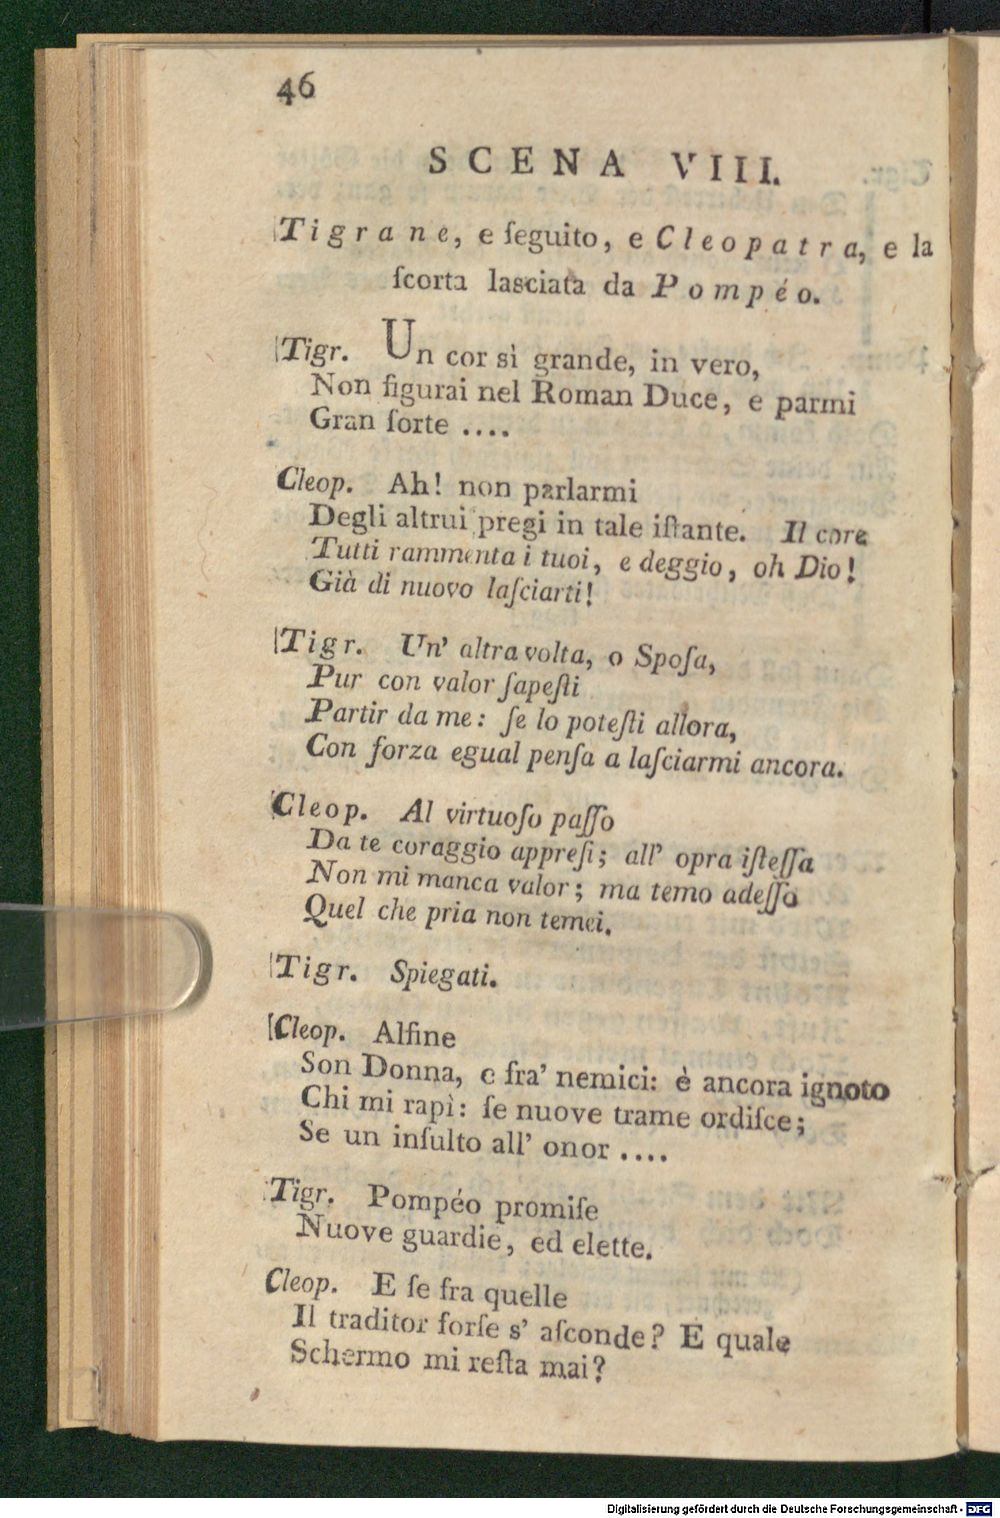 46
SCENA VIII.
Tigrane, e ſeguito, e Cleopatra, e la
ſcorta lasciata da Pompéo.
Tigr. Un cor sì grande, in vero,
Non figurai nel Roman Duce, e parmi
Gran ſorte ....
Cleop. Ah! non parlarmi
Degli altrui pregi in tale iſtante. Il core
Tutti rammenta i tuoi, e deggio, oh Dio!
Già di nuovo laſciarti!
Tigr. Un' altra volta, o Spoſa,
Pur con valor ſapeſti
Partir da me: ſe lo poteſti allora,
Con forza egual penſa a laſciarmi ancora.
Cleop. Al virtuoſo paſſo
Da te coraggio appreſi; all' opra iſteſſa
Non mi manca valor; ma temo adeſſo
Quel che pria non temei.
Tigr. Spiegati.
Cleop. Alfine
Son Donna, e fra' nemici: è ancora ignoto
Chi mi rapì: ſe nuove trame ordiſce;
Se un inſulto all' onor ....
Tigr. Pompéo promiſe
Nuove guardie, ed elette.
Cleop. E ſe fra quelle
Il traditor forſe s' aſconde? E quale
Schermo mi reſta mai?
Digitalisierung gefördert durch die Deutsche Forschungsgemeinschaft - DFG